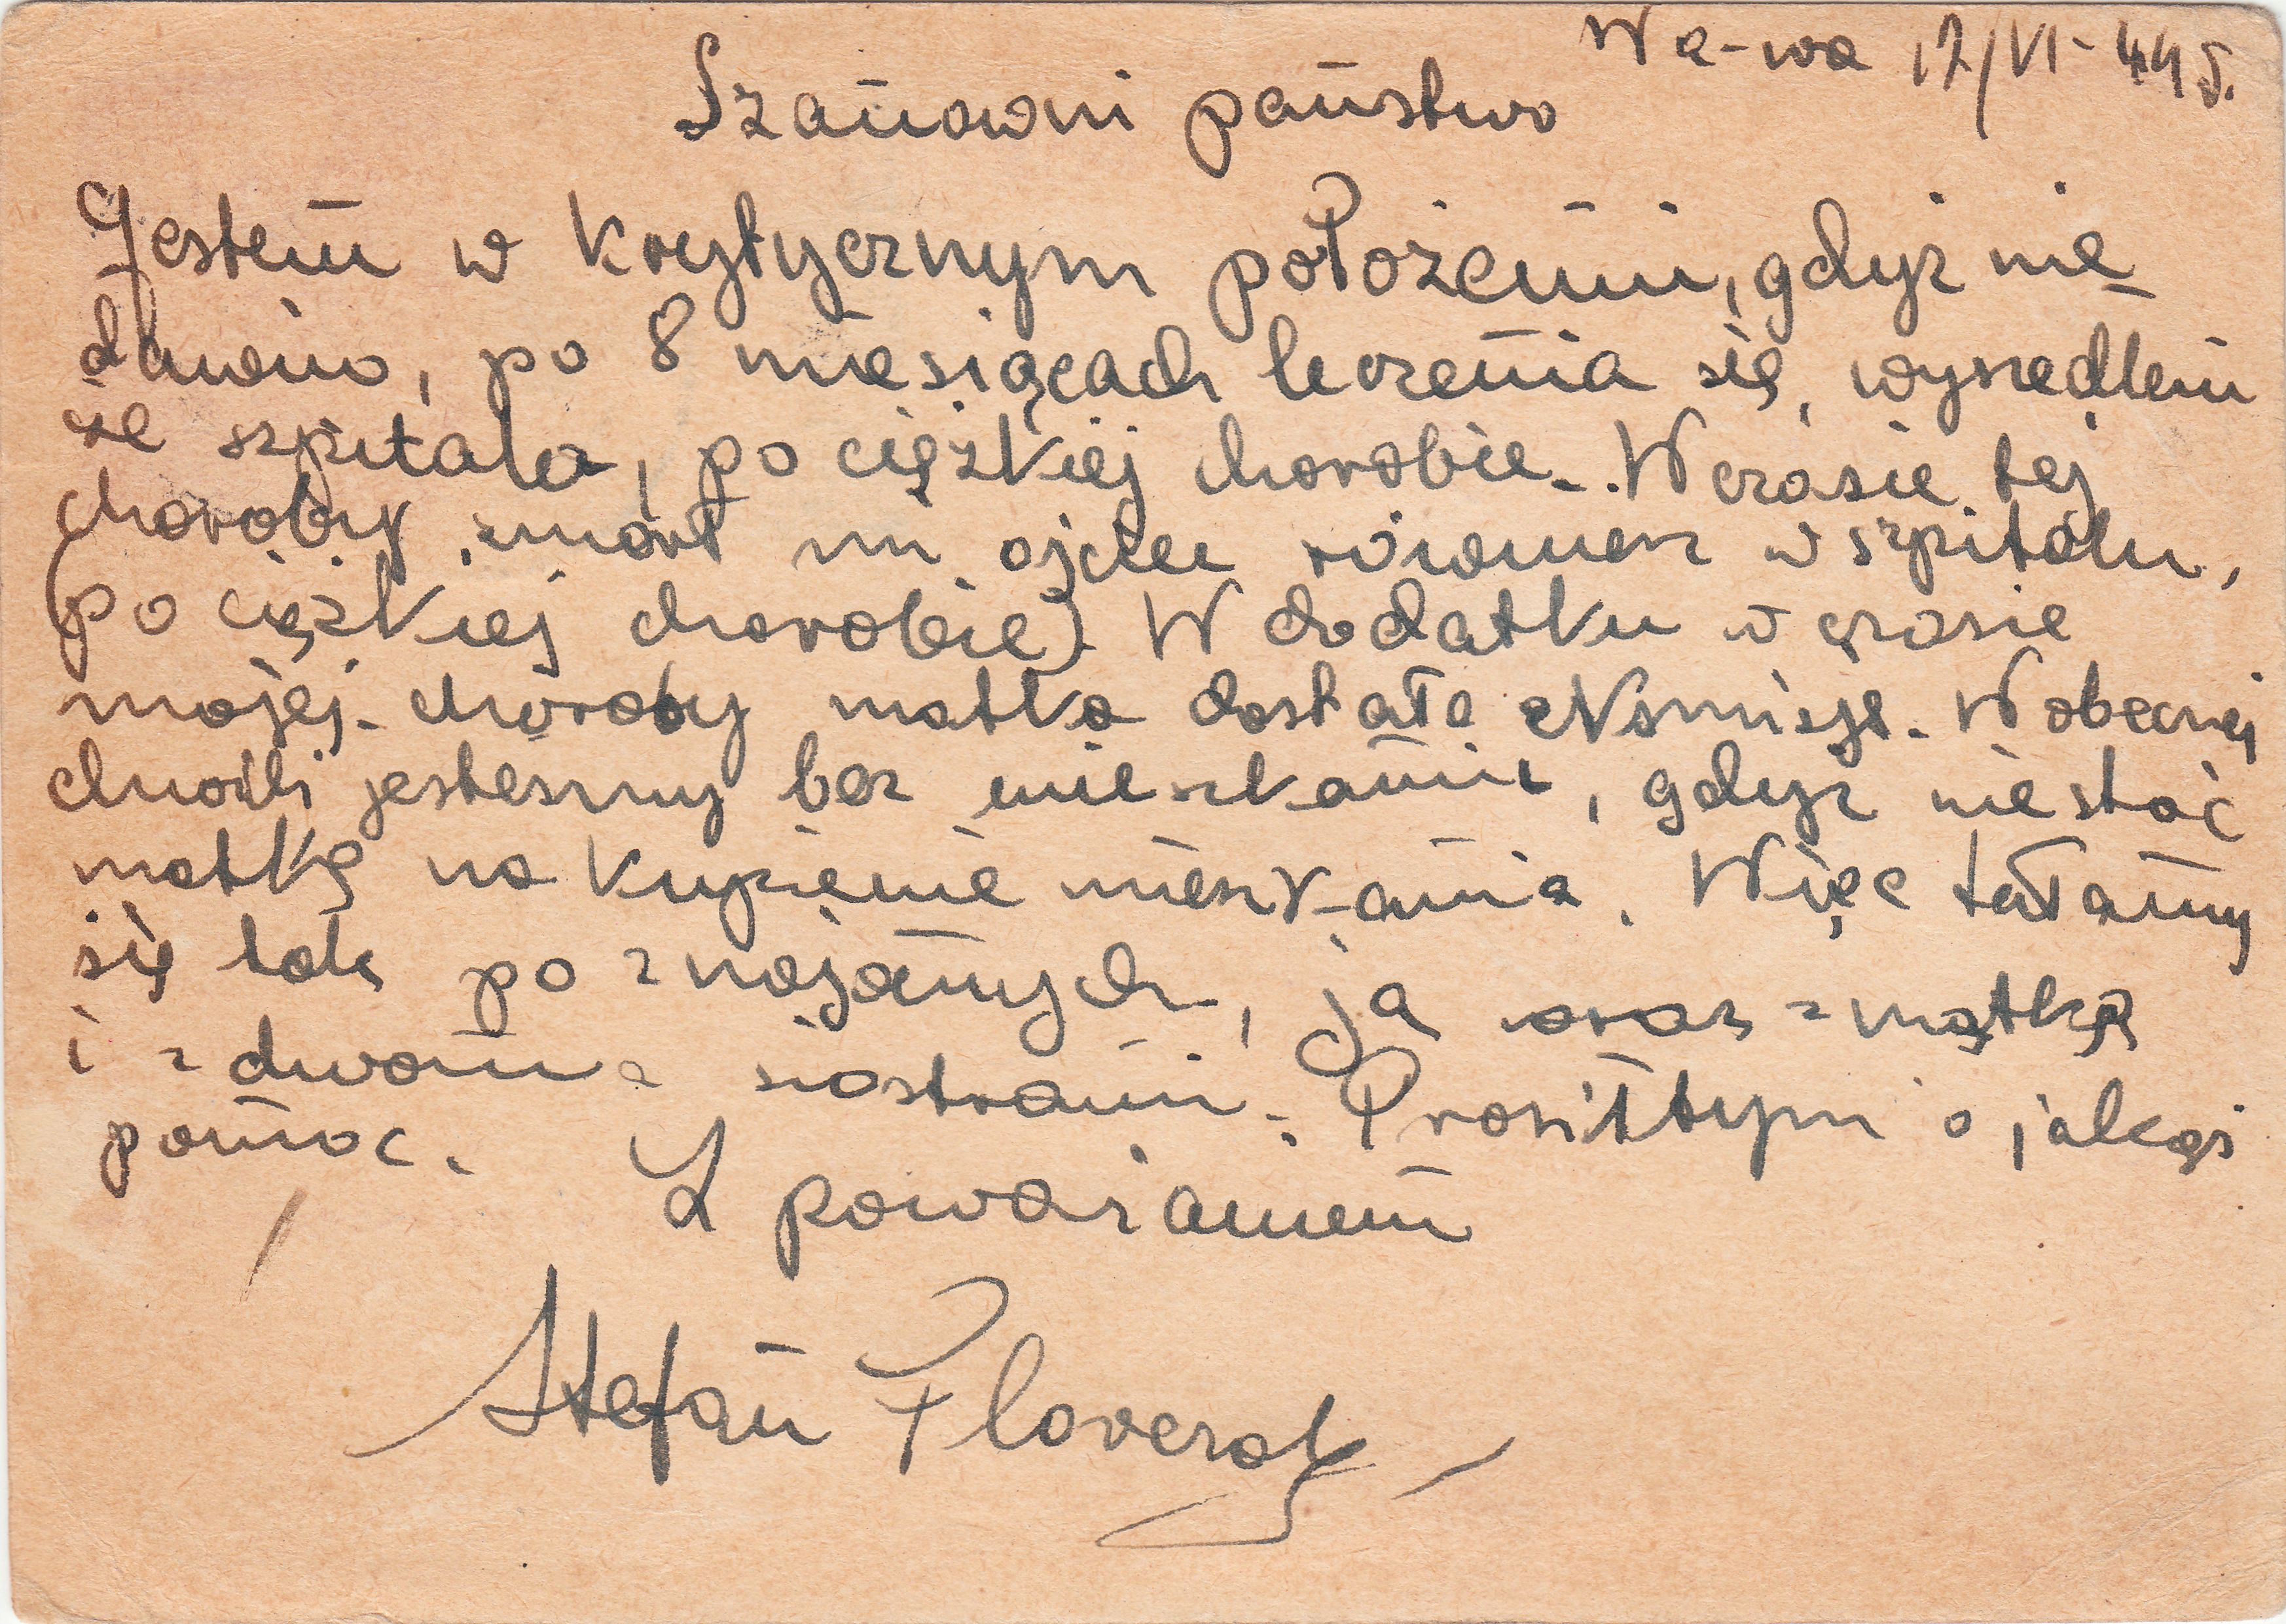 Wa-wa 17/VI-44 r.
Szanowni państwo
Jestem w krytycznym położeniu, gdyż nie-
dawno, po 8 miesiącach leczenia się, wyszedłem
ze szpitala, po ciężkiej chorobie. W czasie tej
choroby zmarł mi ojciec również w szpitalu,
(po ciężkiej chorobie). W dodatku w czasie
mojej choroby matka dostała eksmisje. W obecnej
chwili jesteśmy bez mieszkania, gdyż nie stać
matkę na kupienie mieszkania. Więc tułamy
się tak po znajomych, ja oraz z matką
i z dwoma siostrami. Prosiłbym o jakąś
pomoc.
Z poważaniem
Stefan